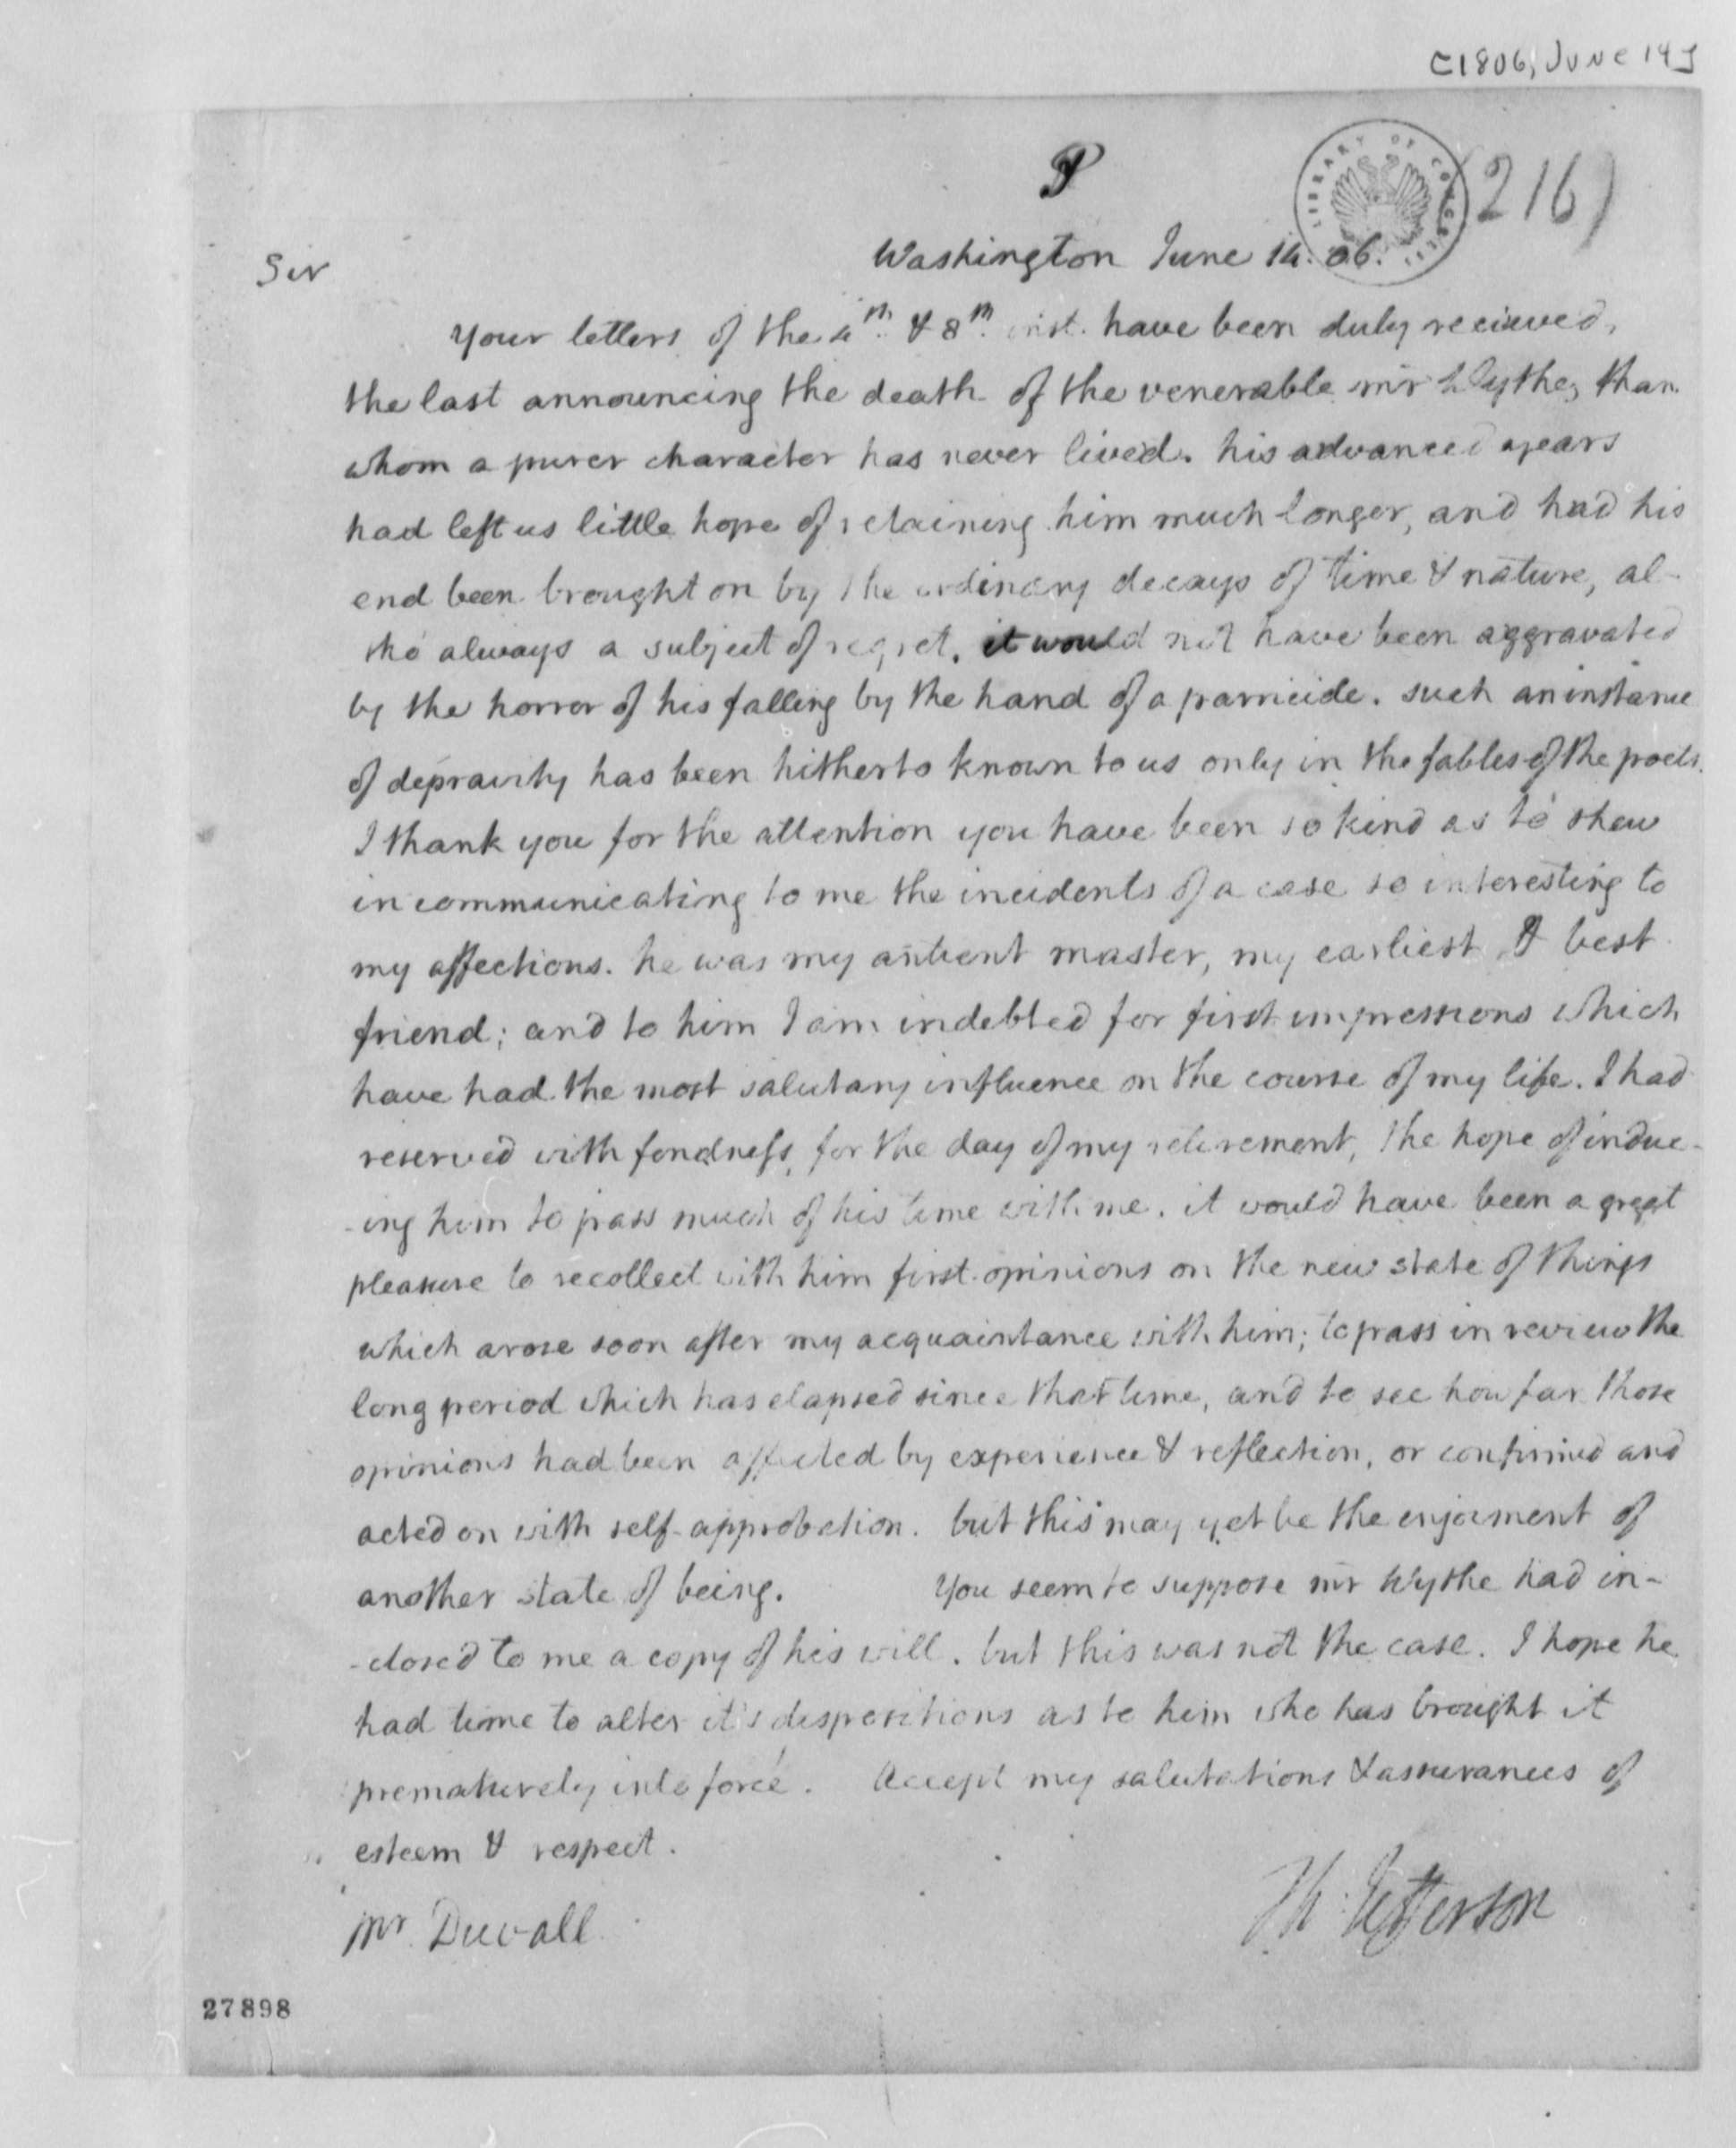 [1806, June 14]
LIBRARY OF CONGRESS
(216)
Washington June 14. 06.
Sir
Your letters of the 4th. & 8th. inst. have been duly recieved,
the last announcing the death of the venerable mr Wythe, than
whom a purer character has never lived. his advanced years
had left us little hope of retaining him much longer, and had his
end been brought on by the ordinary decays of time & nature, al-
tho' always a subject of regret, it would not have been aggravated
by the horror of his falling by the hand of a parricide. such an instance
of depravity has been hitherto known to us only in the fables of the poets.
I thank you for the attention you have been so kind as to shew
in communicating to me the incidents of a case so interesting to
my affections. he was my antient master, my earliest & best
friend; and to him I am indebted for first impressions which
have had the most salutary influence on the course of my life. I had
reserved with fondness, for the day of my retirement, the hope of induc-
-ing him to pass much of his time with me. it would have been a great
pleasure to recollect with him first opinions on the new state of things
which arose soon after my acquaintance with him; to pass in review the
long period which has elapsed since that time, and to see how far those
opinions had been affected by experience & reflection, or confirmed and
acted on with self-approbation. but this may yet be the enjoiment of
another state of being. You seem to suppose mr Wythe had in-
-closed to me a copy of his will. but this was not the case. I hope he
had time to alter it's dispositions as to him who has brought it
prematurely into force. Accept my salutations & assurances of
esteem & respect.
Th: Jefferson
Mr. Duvall
27898